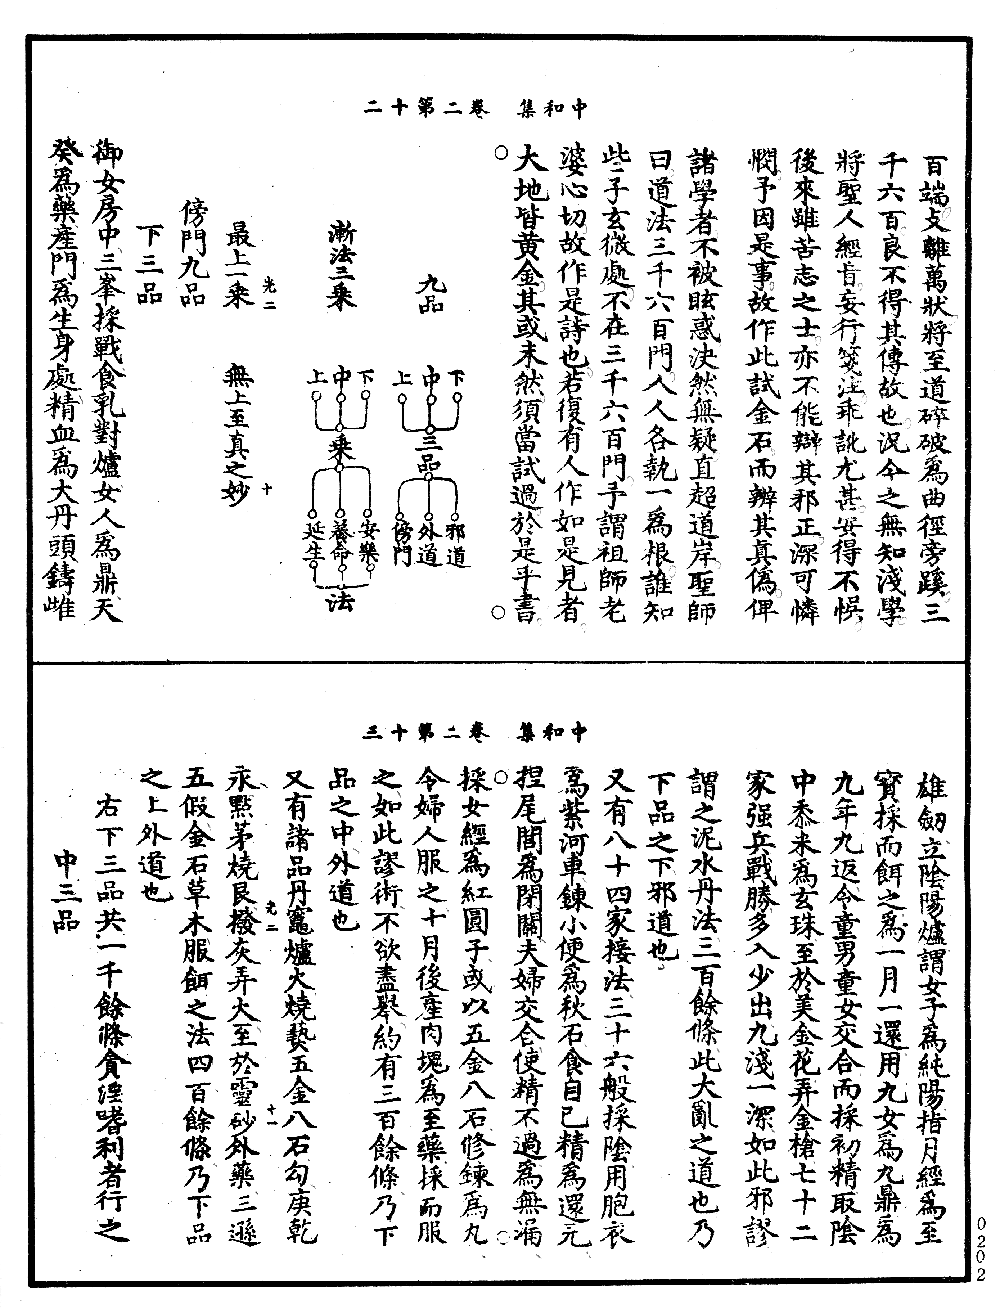 中和集　卷二第十二
百端攴離萬狀將至道碎破為曲徑旁蹊三
千六百良不得其傳故也況今之無知淺學
將聖人經旨妄行箋注乖訛尤甚安得不悞
後來雖苦志之士亦不能辯其邪正深可憐
憫予因是事故作此試金石而辨其真偽俾
諸學者不被眩惑決然無疑直超道岸聖師
曰道法三千六百門人人各執一為根誰知
些子玄微處不在三千六百門乎謂祖師老
婆心切故作是詩也若復有人作如是見者
大地皆黃金其或未然須當試過於是乎書
九品
下
中
上
三品
邪道
外道
傍門
漸法三乘
下
中
上
乘
安樂
養命
延生
法
最上一乘　無上至真之妙
光二
十
傍門九品
下三品
御女房中三峯採戰食乳對爐女人為鼎天
癸為藥產門為生身處精血為大丹頭鑄雌
中和集　卷二第十三
雄劒立陰陽爐謂女子為純陽指月經為至
寶採而餌之為一月一還用九女為九鼎為
九年九返令童男童女交合而採初精取陰
中黍米為玄珠至於美金花弄金槍七十二
家强兵戰勝多入少出九淺一深如此邪謬
謂之泥水丹法三百餘條此大亂之道也乃
下品之下邪道也
又有八十四家接法三十六般採陰用胞衣
為紫河車鍊小便為秋石食自己精為還元
捏尾閭為閉關夫婦交合使精不過為無漏
採女經為紅圓子或以五金八石修鍊為丸
令婦人服之十月後產肉塊為至藥採而服
之如此謬術不欲盡舉約有三百餘條乃下
品之中外道也
又有諸品丹竈爐火燒爇五金八石勾庚乾
汞點茅燒艮撥灰弄大至於靈砂外藥三遜
五假金石草木服餌之法四百餘條乃下品
之上外道也
光二
十一
右下三品共一千餘條貪淫嗜利者行之
中三品
0202